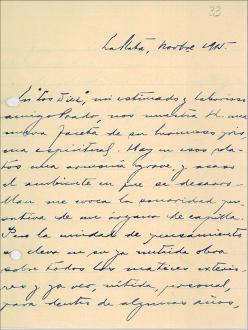 33
La Plata, Novbre 1915.
En "Los Diez", mi estimado y laborioso
amigo Prado, nos muestra U. una
nueva faceta de su hermoso pris
ma espiritual. Hay en esos rela-
tos una armonía grave, y acaso
el ambiente en que se desarro-
llan me evoca la sonoridad pen-
sativa de un órgano de capilla.
Pero la unidad de pensamiento
se eleva en su ya nutrida obra
sobre todos los matices exterio-
res y ya veo, nítida, personal,
para dentro de algunos años,